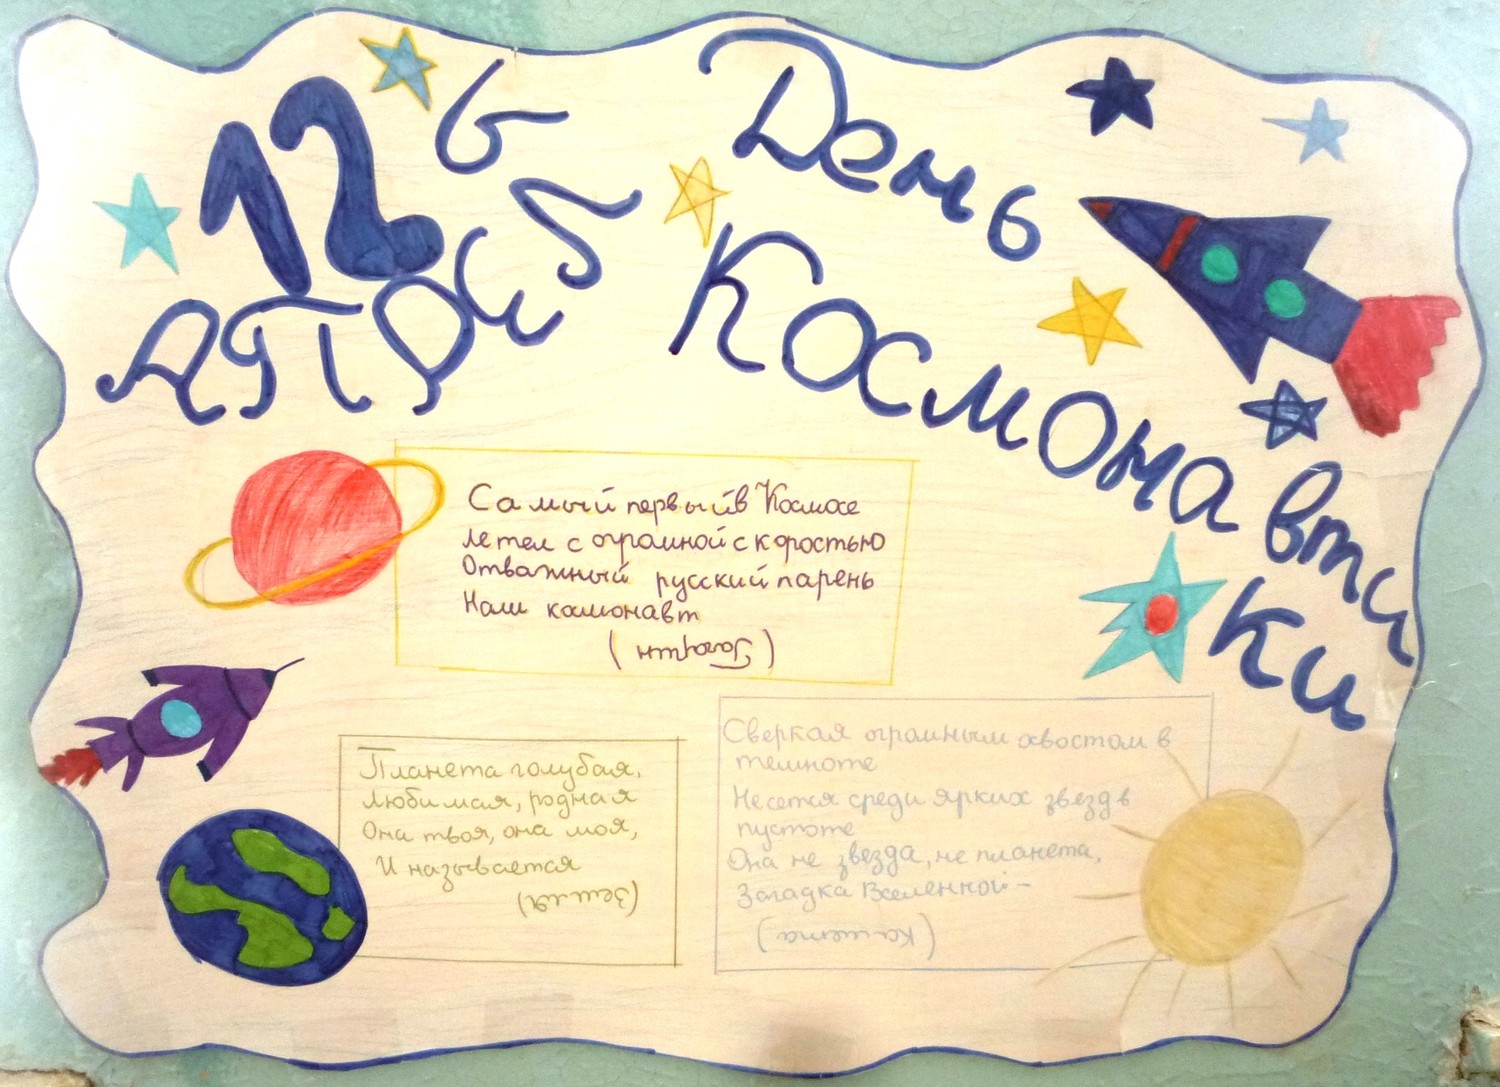 12 Апрель
День
Космонавтики
Самый первый в Космосе
летел с огромной скоростью
Отважный русский парень
Наш космонавт
(Гагарин)
Планета голубая,
Любимая, родная
Она твоя, она моя,
И называется
(Земля)
Сверкая огромным хвостом в
темноте
Несется среди ярких звезд в
пустоте
Она не звезда, не планета,
Загадка Вселенной -
(комета)